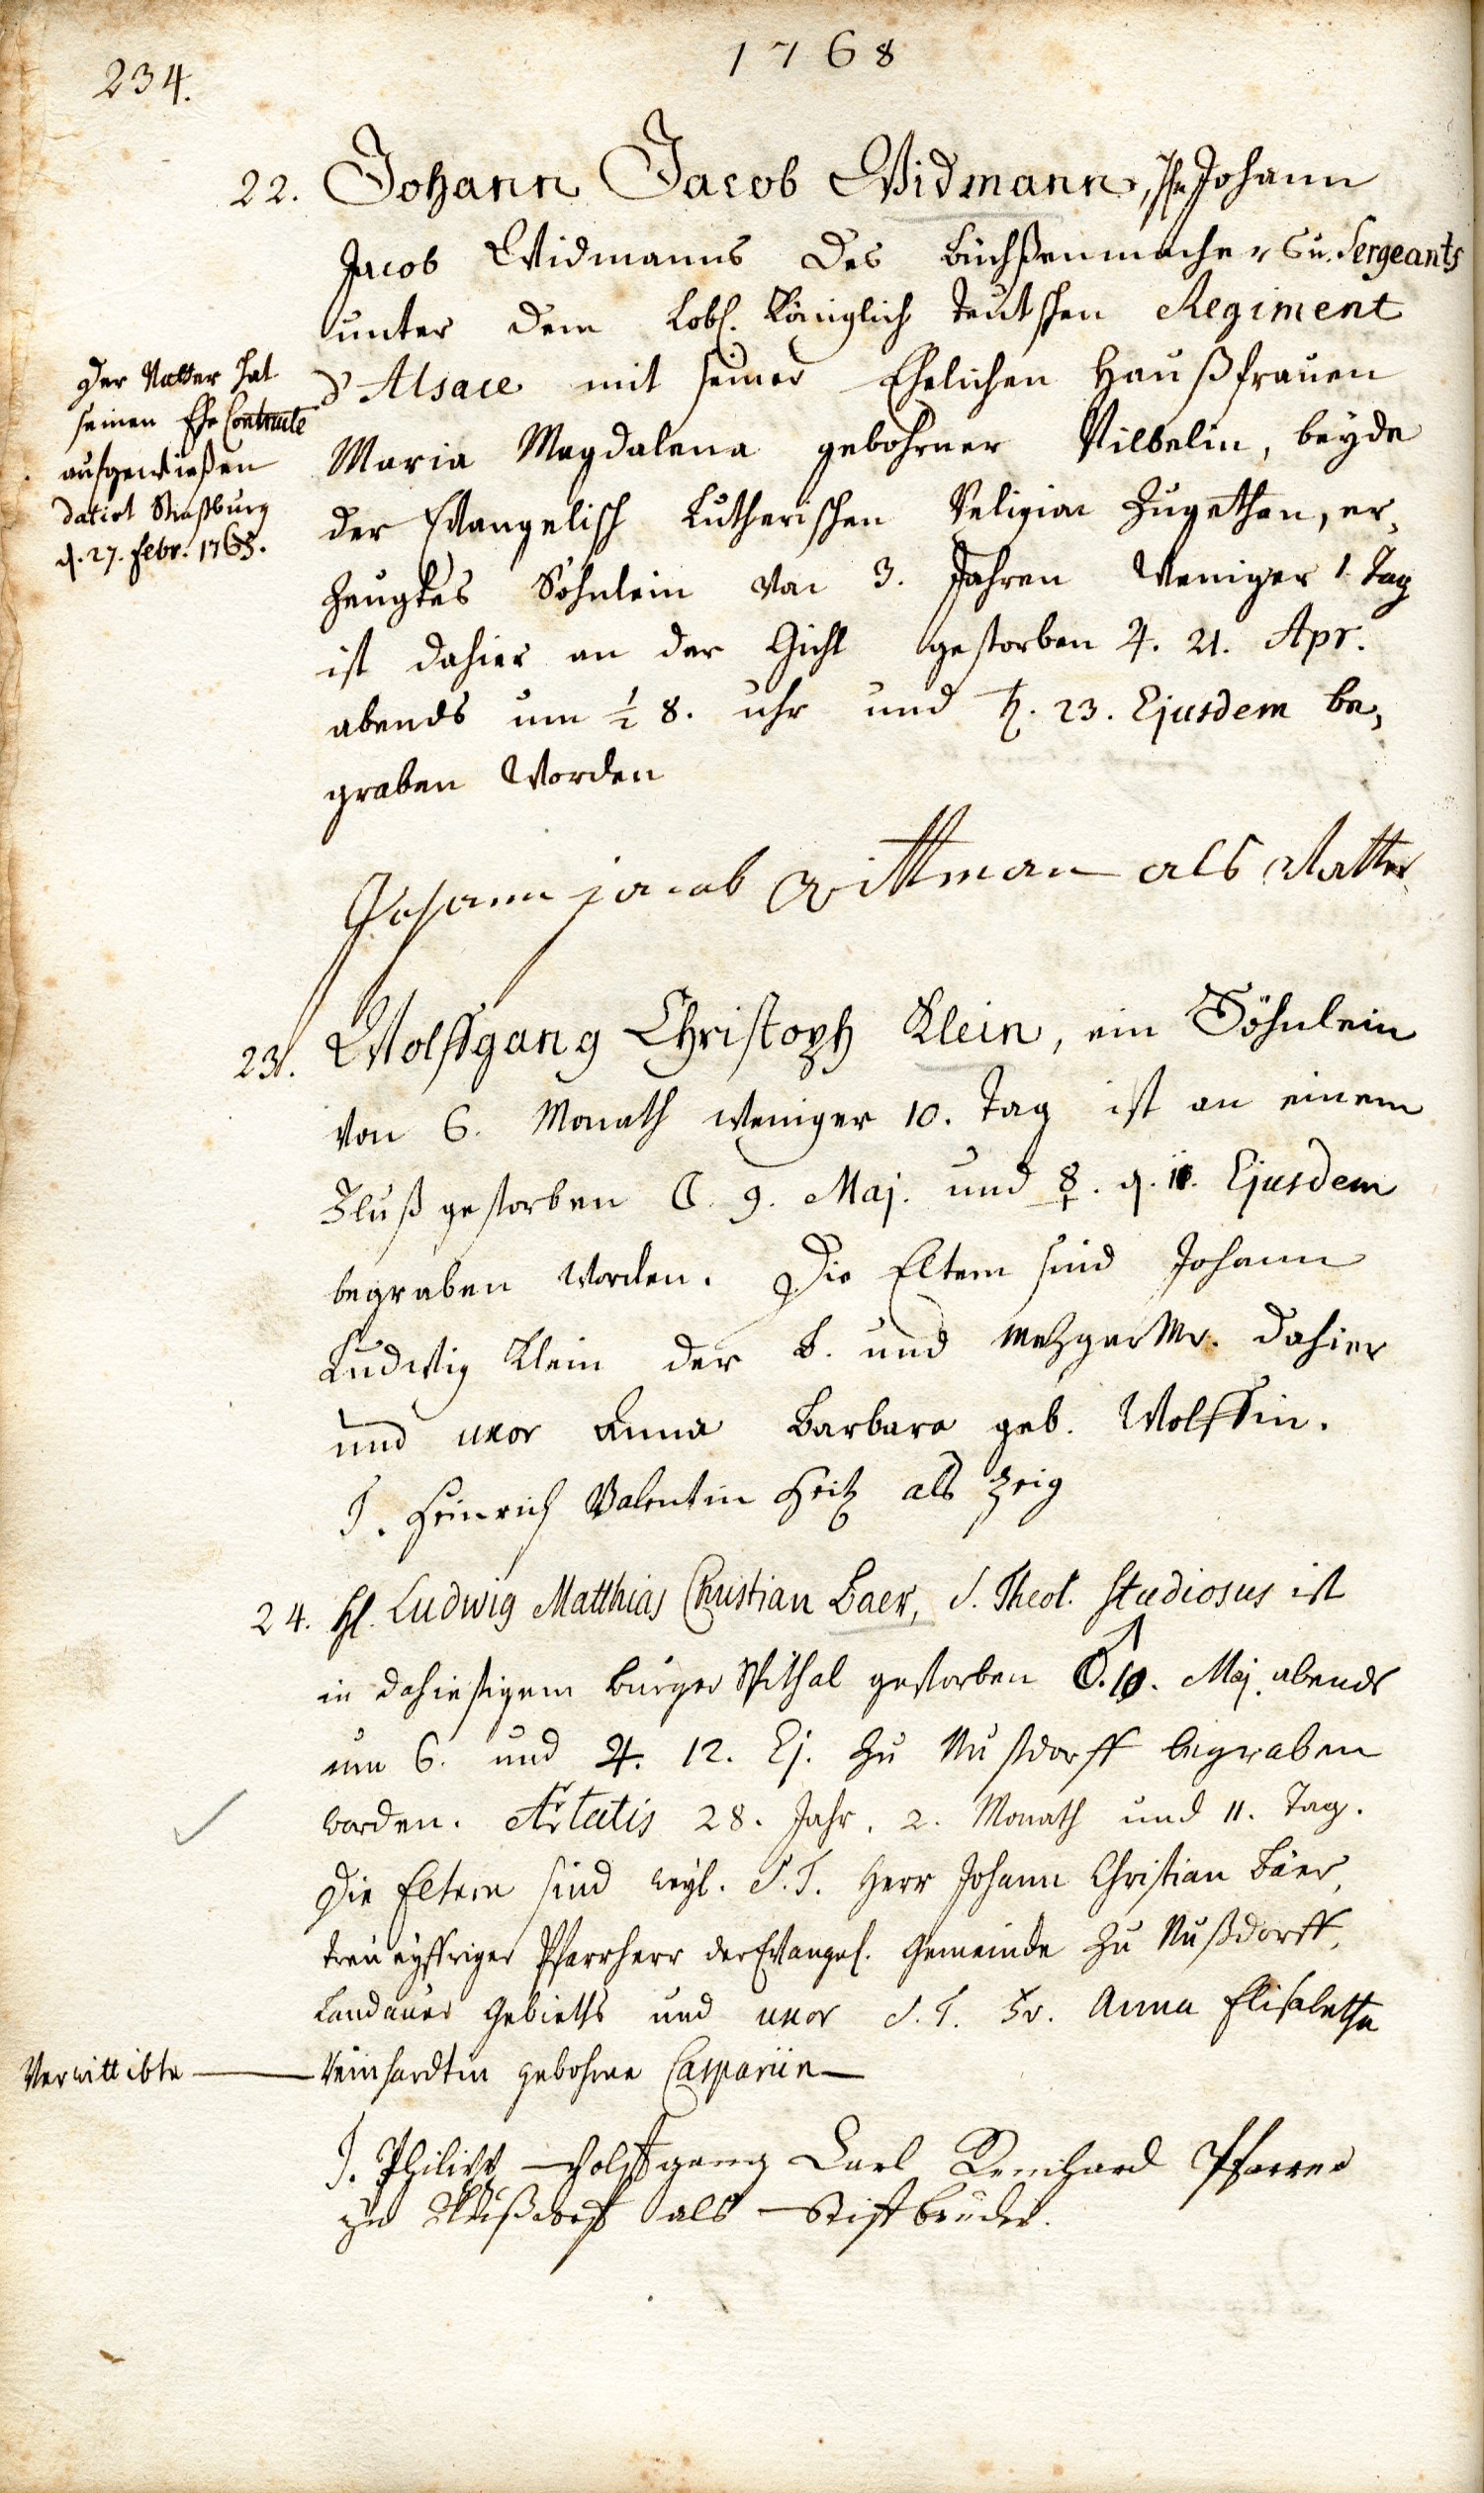 1768
234.
22. Johann Jacob Widmann, Johann
Jacob Widmanns des Büchßenmachers u. Sergeants
unter dem Lobl. Königlich Teutschen Regiment
d'Alsace mit seiner Ehelichen Haußfrauen
Maria Magdalena gebohrner Vilbelin, beyde
der Evangelisch Lutherischen Religion Zugethan, er-
zeugtes Söhnlein von 3. Jahren weniger 1 Tag
ist dahier an der Gicht gestorben ♃. 21. Apr.
abends um ½ 8. uhr und ♄. 23. Ejusdem be-
graben worden
Der Vatter hat
seinen Ehe Contracte
aufgewießen
datirt Straßburg
d. 27. Febr. 1765.
Johann jacob wittman als Vatter
23. Wolffgang Christoph Klein, ein Söhnlein
von 6. Monath weniger 10. Tag ist an einem
Fluß gestorben ☾. 9. Maj. und ☿. d. 11. Ejusdem
begraben worden. Die Eltern sind Johann
Ludwig Klein der B. und MezgerMr. dahier
und uxor Anna Barbara geb. Wolffin.
T. Heinrich Valentin Heitz als Zeig
24. H. Ludwig Matthias Christian Baer, S. Theol. Studiosus ist
in dahiesigem Burger Spithal gestorben ♂. 10. Maj. abends
um 6. und ♃. 12. Ej. zu Nußdorff begraben
worden. Ætatis 28. Jahr. 2. Monath und 11. Tag.
Die Eltern sind weyl. S.T. Herr Johann Christian Bäer,
treu eyffriger Pfarrherr der Evangel. Gemeinde zu Nußdorff,
Landauer Gebieths und uxor S.T. Fr. Anna Elisabetha
Verwittibte Reinhardtin gebohrne Caspariin
T. Philipp Wolffgang Carl Reinhard Pfarrer
zu Nußdorff als Stiftbruder.